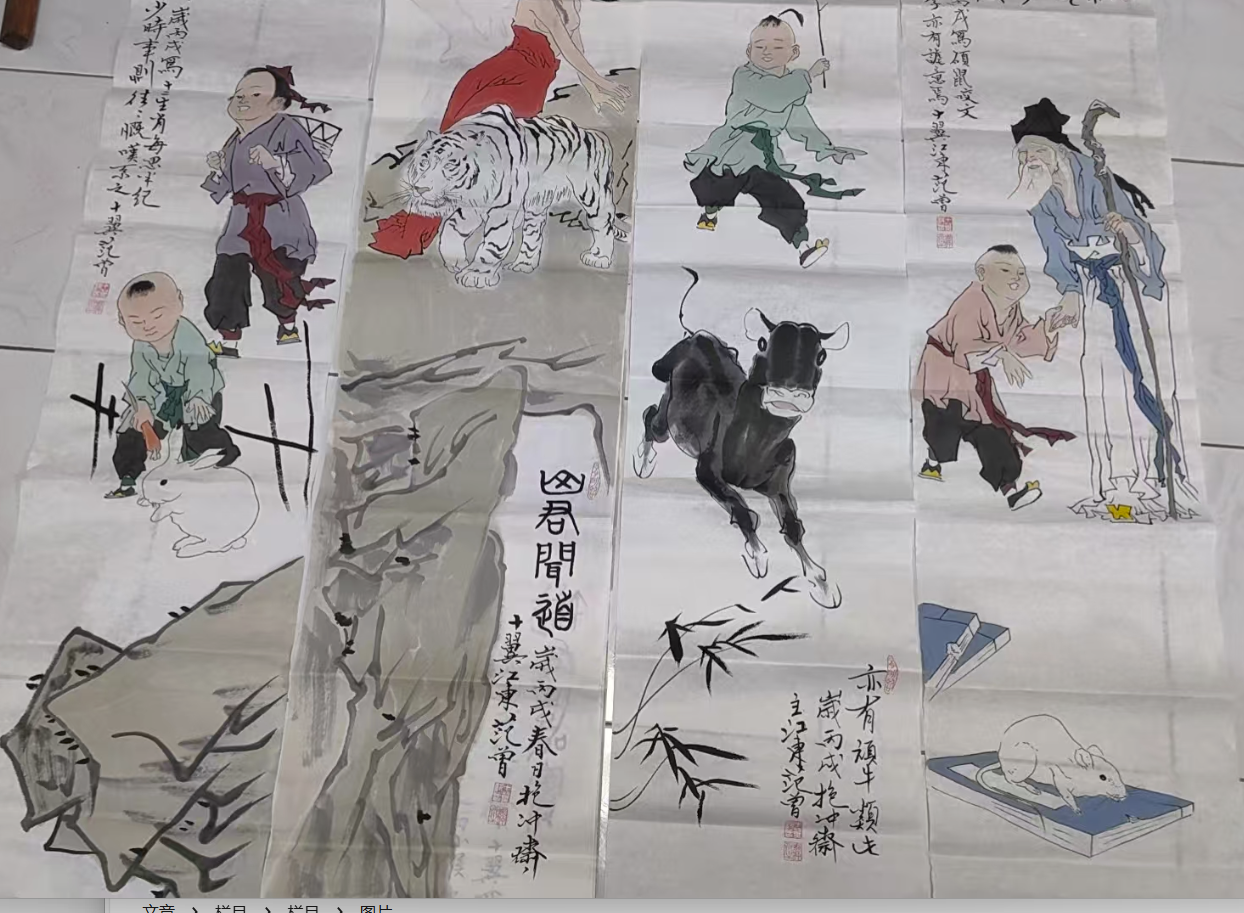 歲丙戌寫十二生肖每思年紀
少時事則往往慨嘆系之十翼范曾
山君聞道
歲丙戌春日抱冲齋
十翼江東范曾
亦有頑牛類此
歲丙戌抱冲齋
主江東范曾
丙戌寫碩鼠咬文
亦有諧意焉十翼江東范曾
文章 > 栏目 > 栏目 > 图片